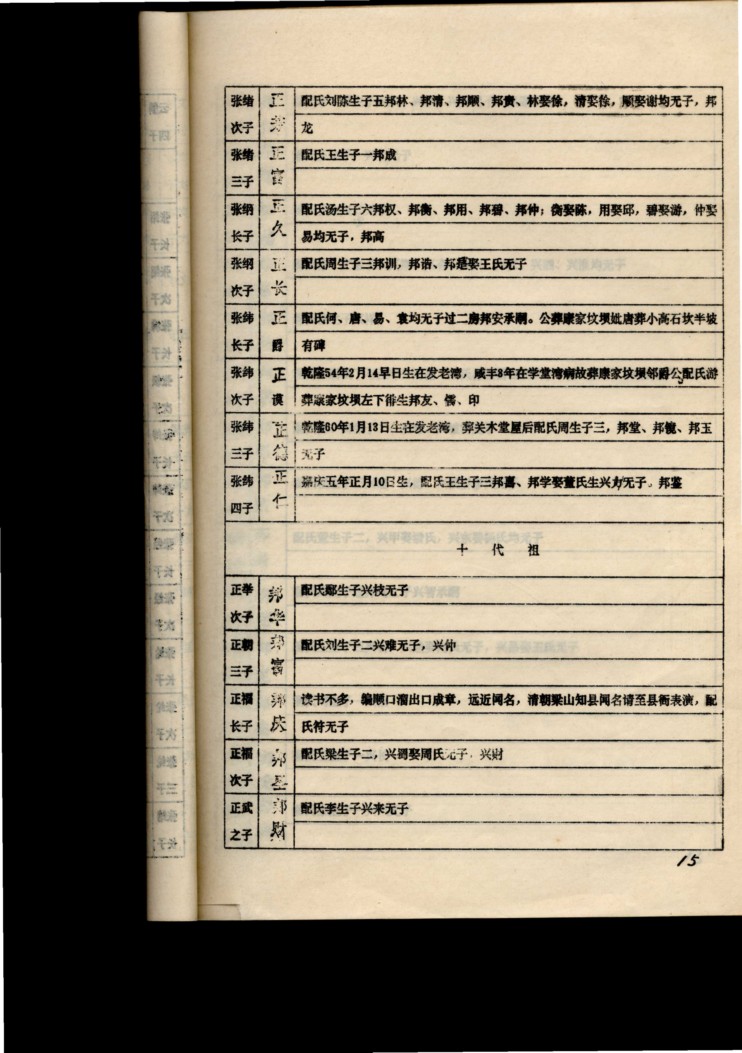 张绪 正 配氏刘陈生子五邦林、邦清、邦顺、邦贵、林娶徐，清娶徐，顺娶谢均无子，邦
次子 龙
张绪 正 配氏王生子一邦成
三子 富
张纲 正 配氏汤生子六邦权、邦衡、邦用、邦碧、邦仲；衡娶陈，用娶邱，碧娶游，仲娶
长子 久 易均无子，邦高
张纲 正 配氏周生子三邦训，邦诰、邦是娶王氏无子
次子 长
张纬 正 配氏何、唐、易、袁均无子过二房邦安承嗣。公葬康家坟坝妣唐葬小高石坎半坡
长子 爵 有碑
张纬 正 乾隆54年2月14早日生在发老湾，咸丰8年在学堂湾病故葬康家坟坝邻爵公配氏游
次子 汉 葬康家坟坝左下排生邦友、儒、印
张纬 正 乾隆60年1月13日生在发老湾，葬关木堂屋后配氏周生子三，邦堂、邦德、邦玉
三子 德 无子
张纬 正 嘉庆五年正月10日生，配氏王生子三邦喜、邦学娶董氏生兴为无子。邦鉴
四子 仁
十代祖
正举 邦 配氏郑生子兴枝无子
次子 华
正朝 邦 配氏刘生子二兴难无子，兴仲
三子 富
正福 邦 读书不多，编顺口溜出口成章，远近闻名，清朝梁山知县闻名请至县衙表演，配
长子 庆 氏符无子
正福 邦 配氏梁生子二，兴调娶周氏无子，兴财
次子
正武 邦 配氏李生子兴来无子
之子 财
15